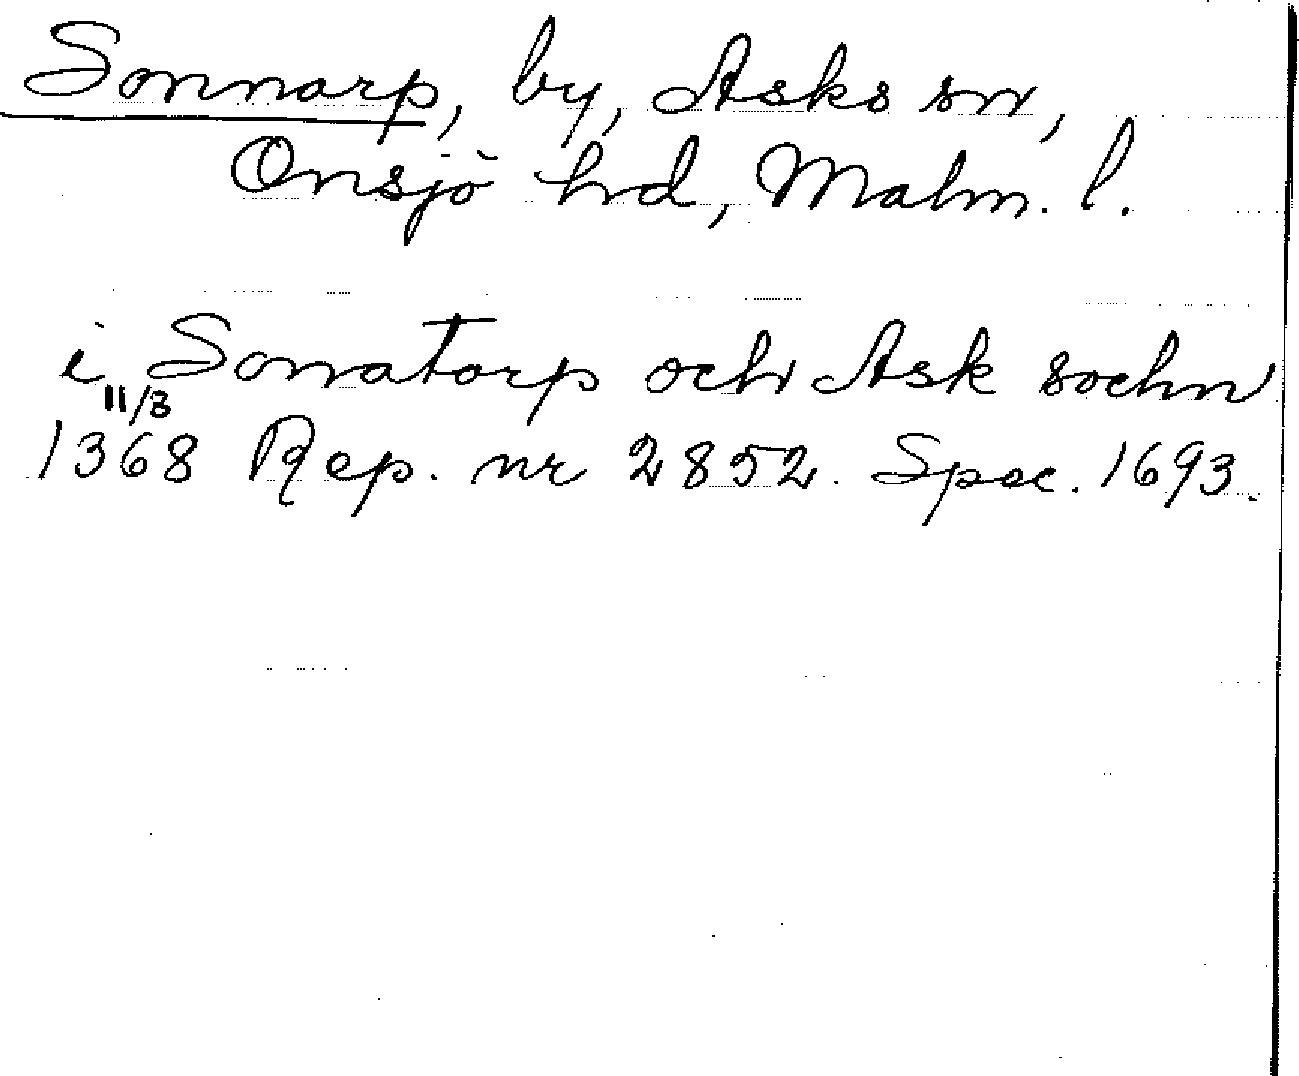 Sonnarp, by, Asks sn,
Onsjö hd, Malm. l.
i Sonatorp och Ask sochn
11/3
1368 Rep. nr 2852. Spec. 1693.